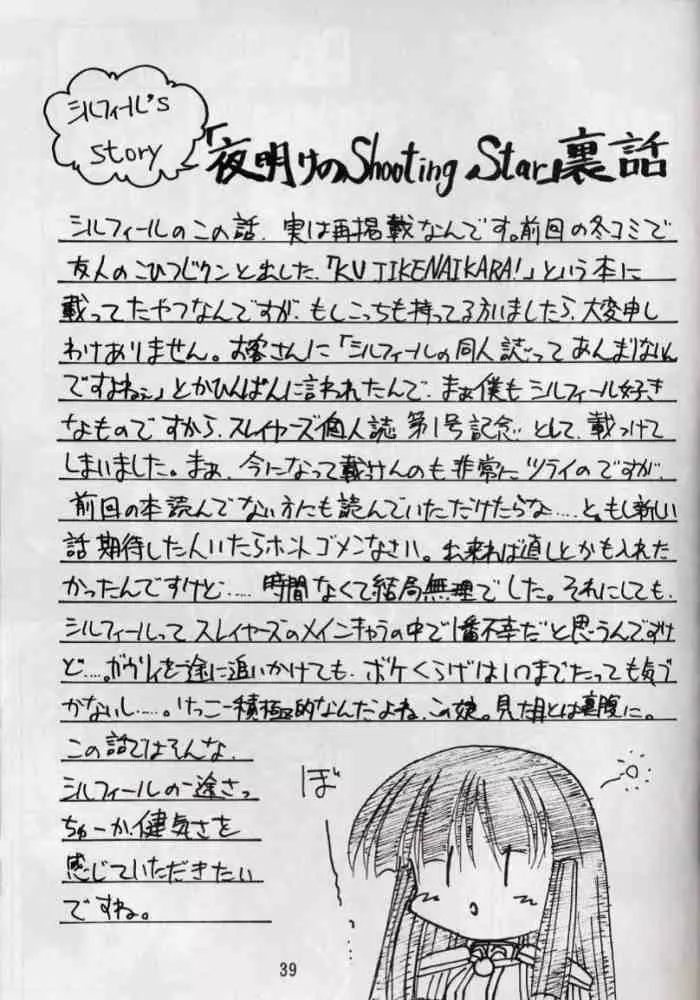 シルフィール's
story
「夜明けのShooting Star」裏話
シルフィールのこの話、実は再掲載なんです。前回の冬コミで
友人のこひつじクンと出した「KUJIKENAIKARA!」という本に
載ってたやつなんですが、もしこっちも持ってる方いましたら、大変申し
わけありません。お客さんに「シルフィールの同人誌ってあんまりないん
ですよねぇ」とかひんぱんに言われたんで、まぁ僕もシルフィール好き
なものですから、スレイヤーズ個人誌第1号記念として、載っけて
しまいました。まぁ、今になって載せんのも非常にツライのですが、
前回の本読んでない方にも読んでいただけたらな……と。もし新しい
話期待した人いたらホントゴメンなさい。出来れば直しとかも入れた
かったんですけど……時間なくて結局無理でした。それにしても、
シルフィールってスレイヤーズのメインキャラの中で1番不幸だと思うんですけ
ど……。ガウリイを一途に追いかけても、ボケくらげはいつまでたっても気づ
かないし……。けっこー積極的なんだよね、この娘。見た目とは裏腹に。
この話ではそんな、
シルフィールの一途さっ
ちゅーか、健気さを
感じていただきたい
ですね。
ぼ
39